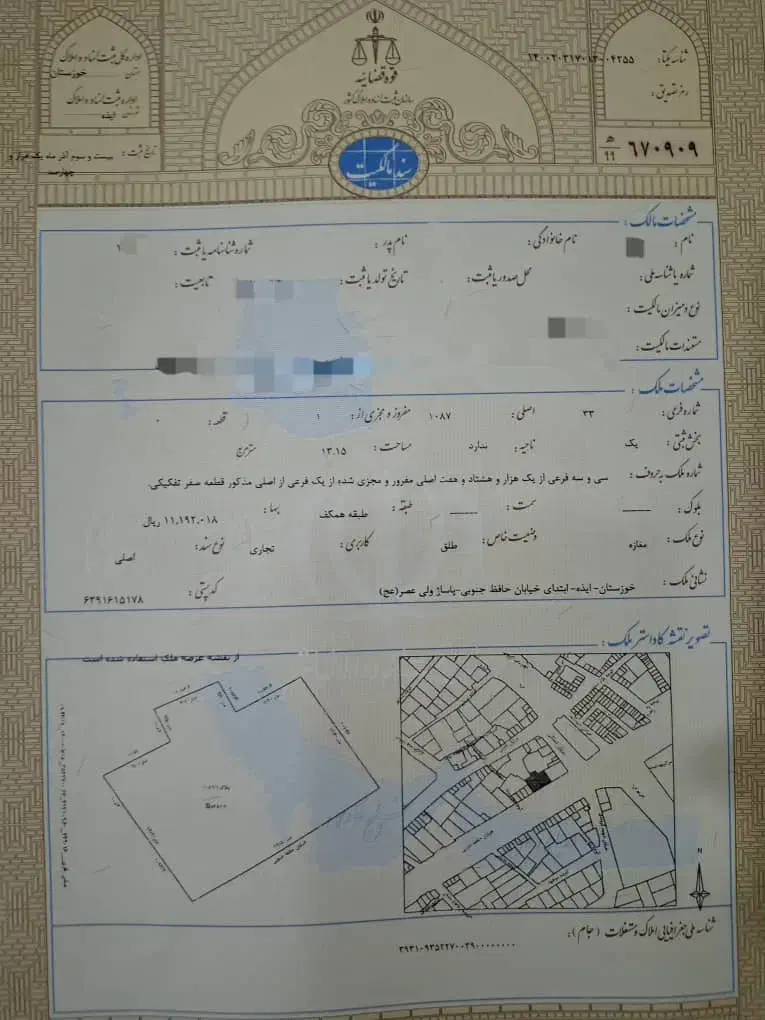 قوه قضائیه
سازمان ثبت اسناد و املاک کشور
اداره کل ثبت اسناد و املاک
استان خوزستان
اداره ثبت اسناد و املاک
ایذه
شناسه یکتا:
رمز تصدیق:
۶۷۰۹۰۹ ھ ۱۱
تاریخ ثبت: بیست و سوم آذر ماه یک هزار و چهارصد
سند مالکیت
مشخصات مالک:
نام: نام خانوادگی: نام پدر: شماره شناسنامه یا ثبت:
شماره یا شناسه ملی: محل صدور یا ثبت: تاریخ تولد یا ثبت: تابعیت:
نوع و میزان مالکیت:
مستندات مالکیت:
مشخصات ملک:
شماره فرعی: ۳۳ اصلی: ۱۰۸۷ مفروز و مجزی از: ۱ قطعه: ۰
بخش ثبتی: یک ناحیه: ندارد مساحت: ۱۳.۱۵ مترمربع
شماره ملک به حروف: سی و سه فرعی از یک هزار و هشتاد و هفت اصلی مفروز و مجزی شده از یک فرعی از اصلی مذکور قطعه صفر تفکیکی.
بلوک: ــــــ سمت: ــــــ طبقه: طبقه همکف بها: ۱۱,۱۹۲,۰۱۸ ریال
نوع ملک: مغازه وضعیت خاص: طلق کاربری: تجاری نوع سند: اصلی
نشانی ملک: خوزستان- ایذه- ابتدای خیابان حافظ جنوبی-پاساژ ولی عصر(عج) کد پستی: ۶۳۹۱۶۱۵۱۷۸
تصویر نقشه کاداستر ملک:
از نقشه عرصه ملک استفاده شده است
N
شناسه ملی جغرافیایی املاک و مستغلات (جام):